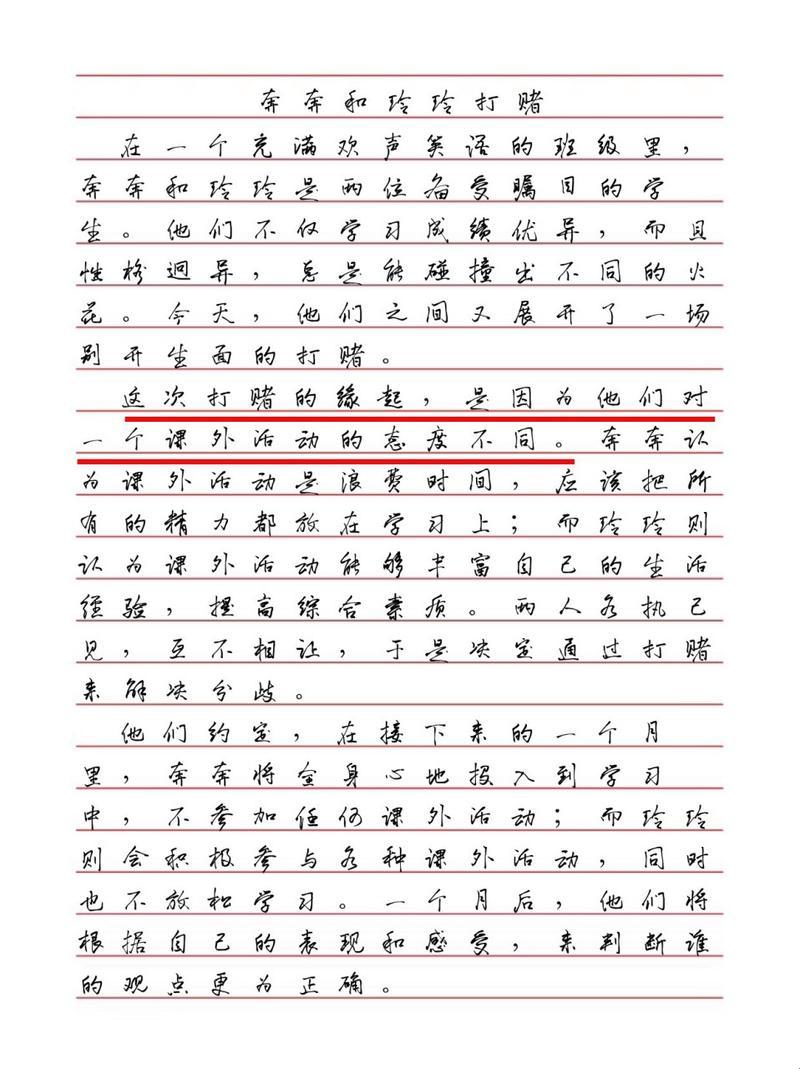 奔奔和玲玲打赌
在一个充满欢声笑语的班级里，
奔奔和玲玲是两位备受瞩目的学
生。他们不仅学习成绩优异，而且
性格迥异，总是能碰撞出不同的火
花。今天，他们之间又展开了一场
别开生面的打赌。
这次打赌的缘起，是因为他们对
一个课外活动的态度不同。奔奔认
为课外活动是浪费时间，应该把所
有的精力都放在学习上；而玲玲则
认为课外活动能够丰富自己的生活
经验，提高综合素质。两人各执己
见，互不相让，于是决定通过打赌
来解决分歧。
他们约定，在接下来的一个月
里，奔奔将全身心地投入到学习
中，不参加任何课外活动；而玲玲
则会积极参与各种课外活动，同时
也不放松学习。一个月后，他们将
根据自己的表现和感受，来判断谁
的观点更为正确。